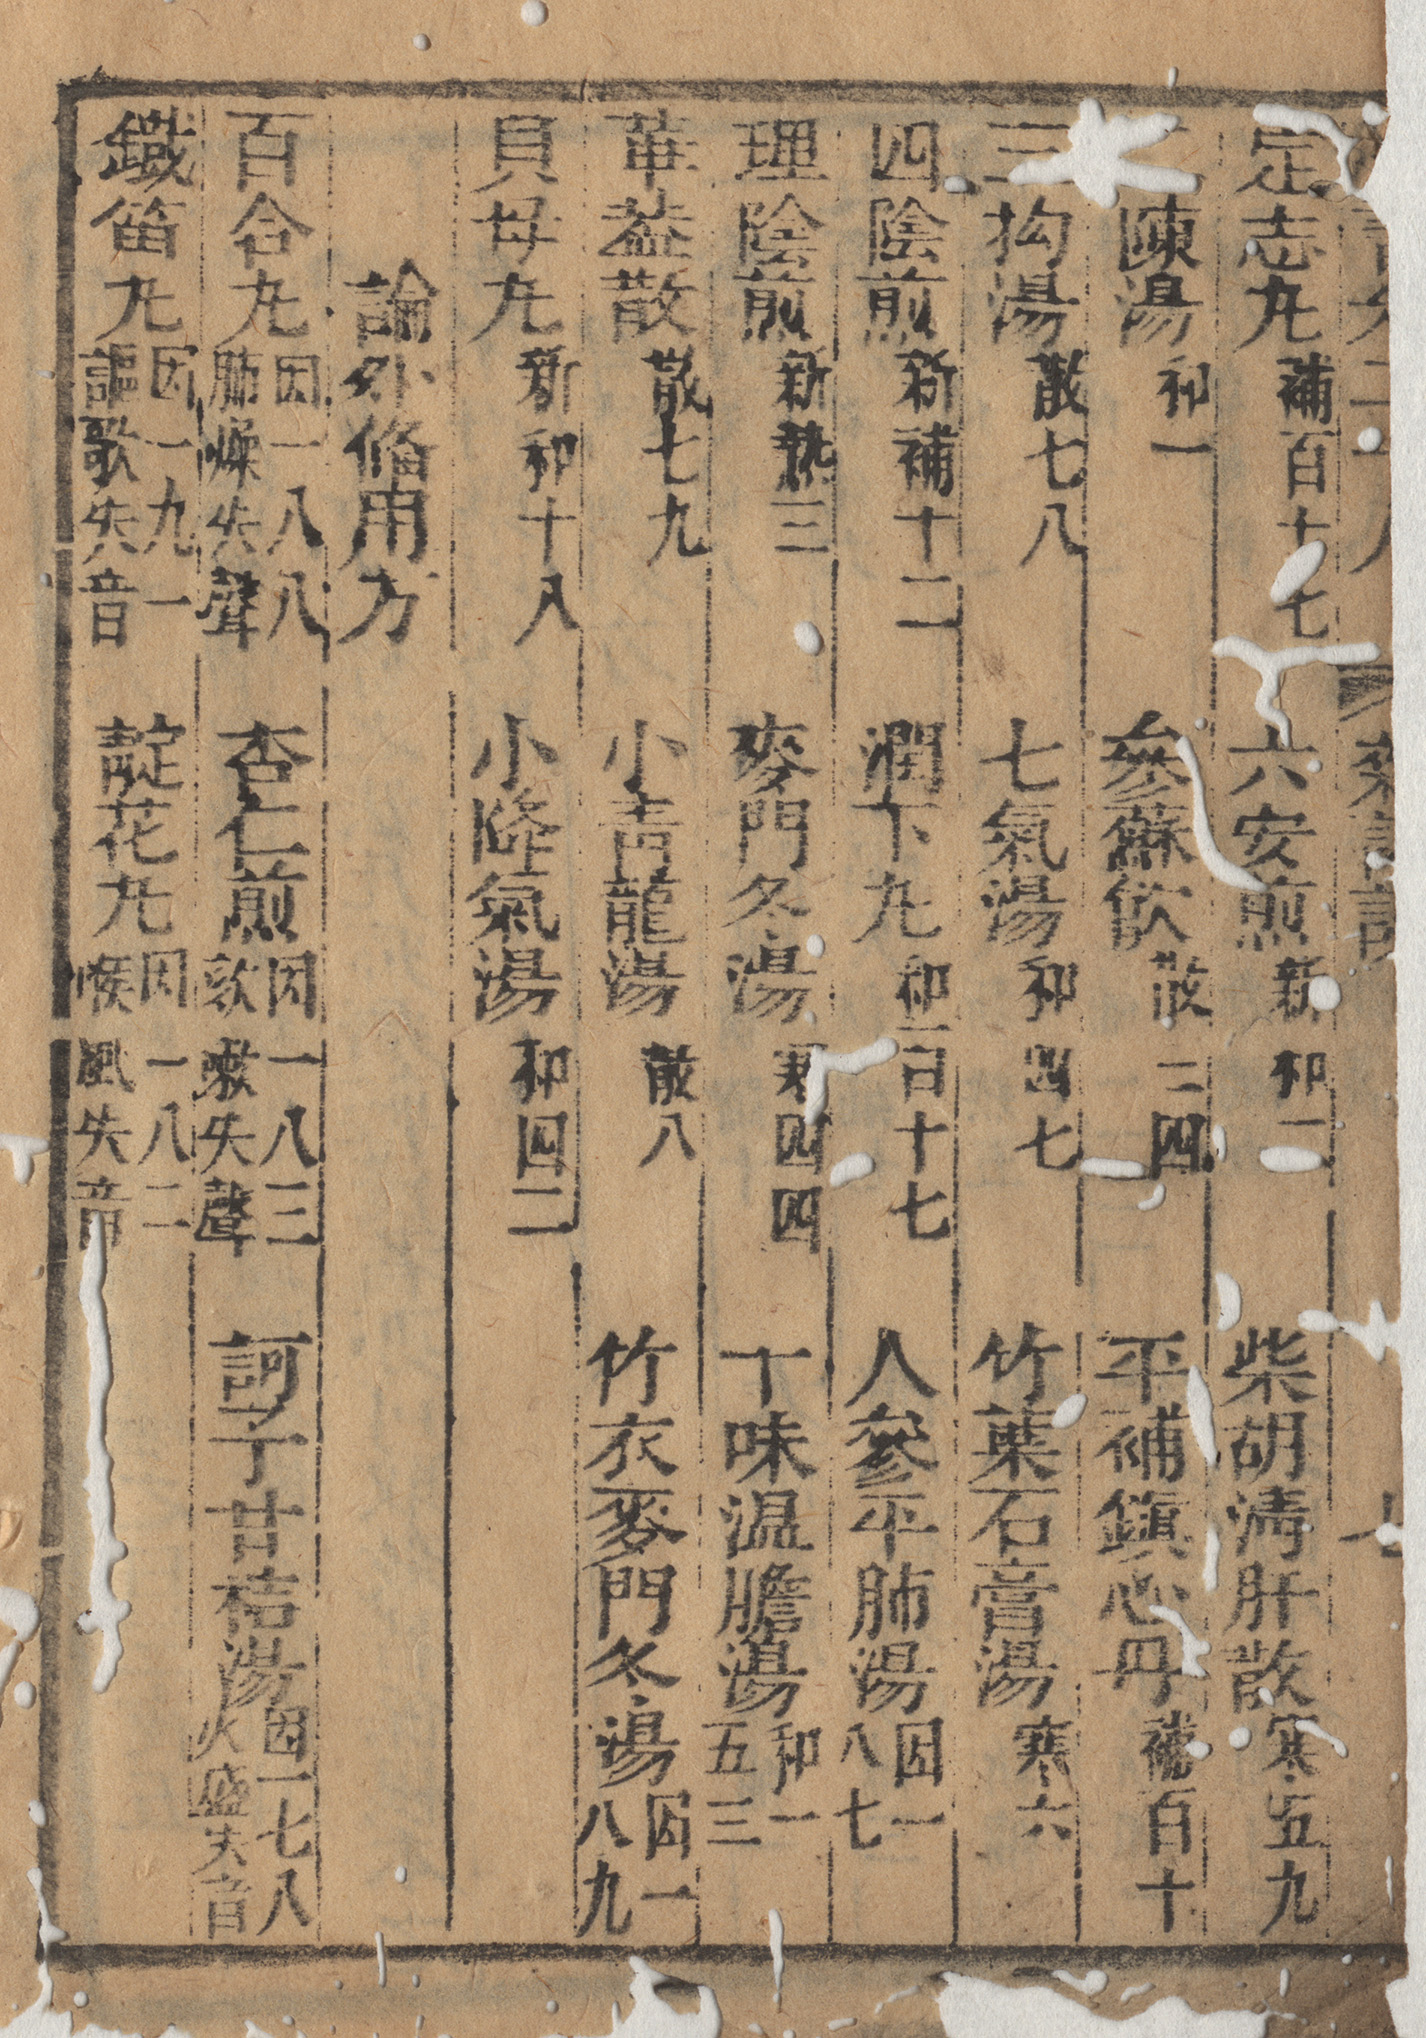 定志丸補百十七 六安煎新和二 柴胡清肝散寒五九
二陳湯和一 參蘇飲散三四 平補鎮心丹補百十
三拘湯散七八 七氣湯和四七 竹葉石膏湯寒六
四陰煎新補十二 潤下丸和百十七 人參平肺湯因一八七
理陰煎新熱三 麥門冬湯寒四四 十味温膽湯和一五三
華蓋散散七九 小青龍湯散八 竹衣麥門冬湯因一八九
貝母丸新和十八 小降氣湯和四二
論外偹用方
百合丸因一八八肺燥失聲 杏仁煎因一八三欬嗽失聲 訶子甘桔湯因一七八火盛失音
鐵笛丸因一九一謳歌失音 靛花丸因一八二喉風失音